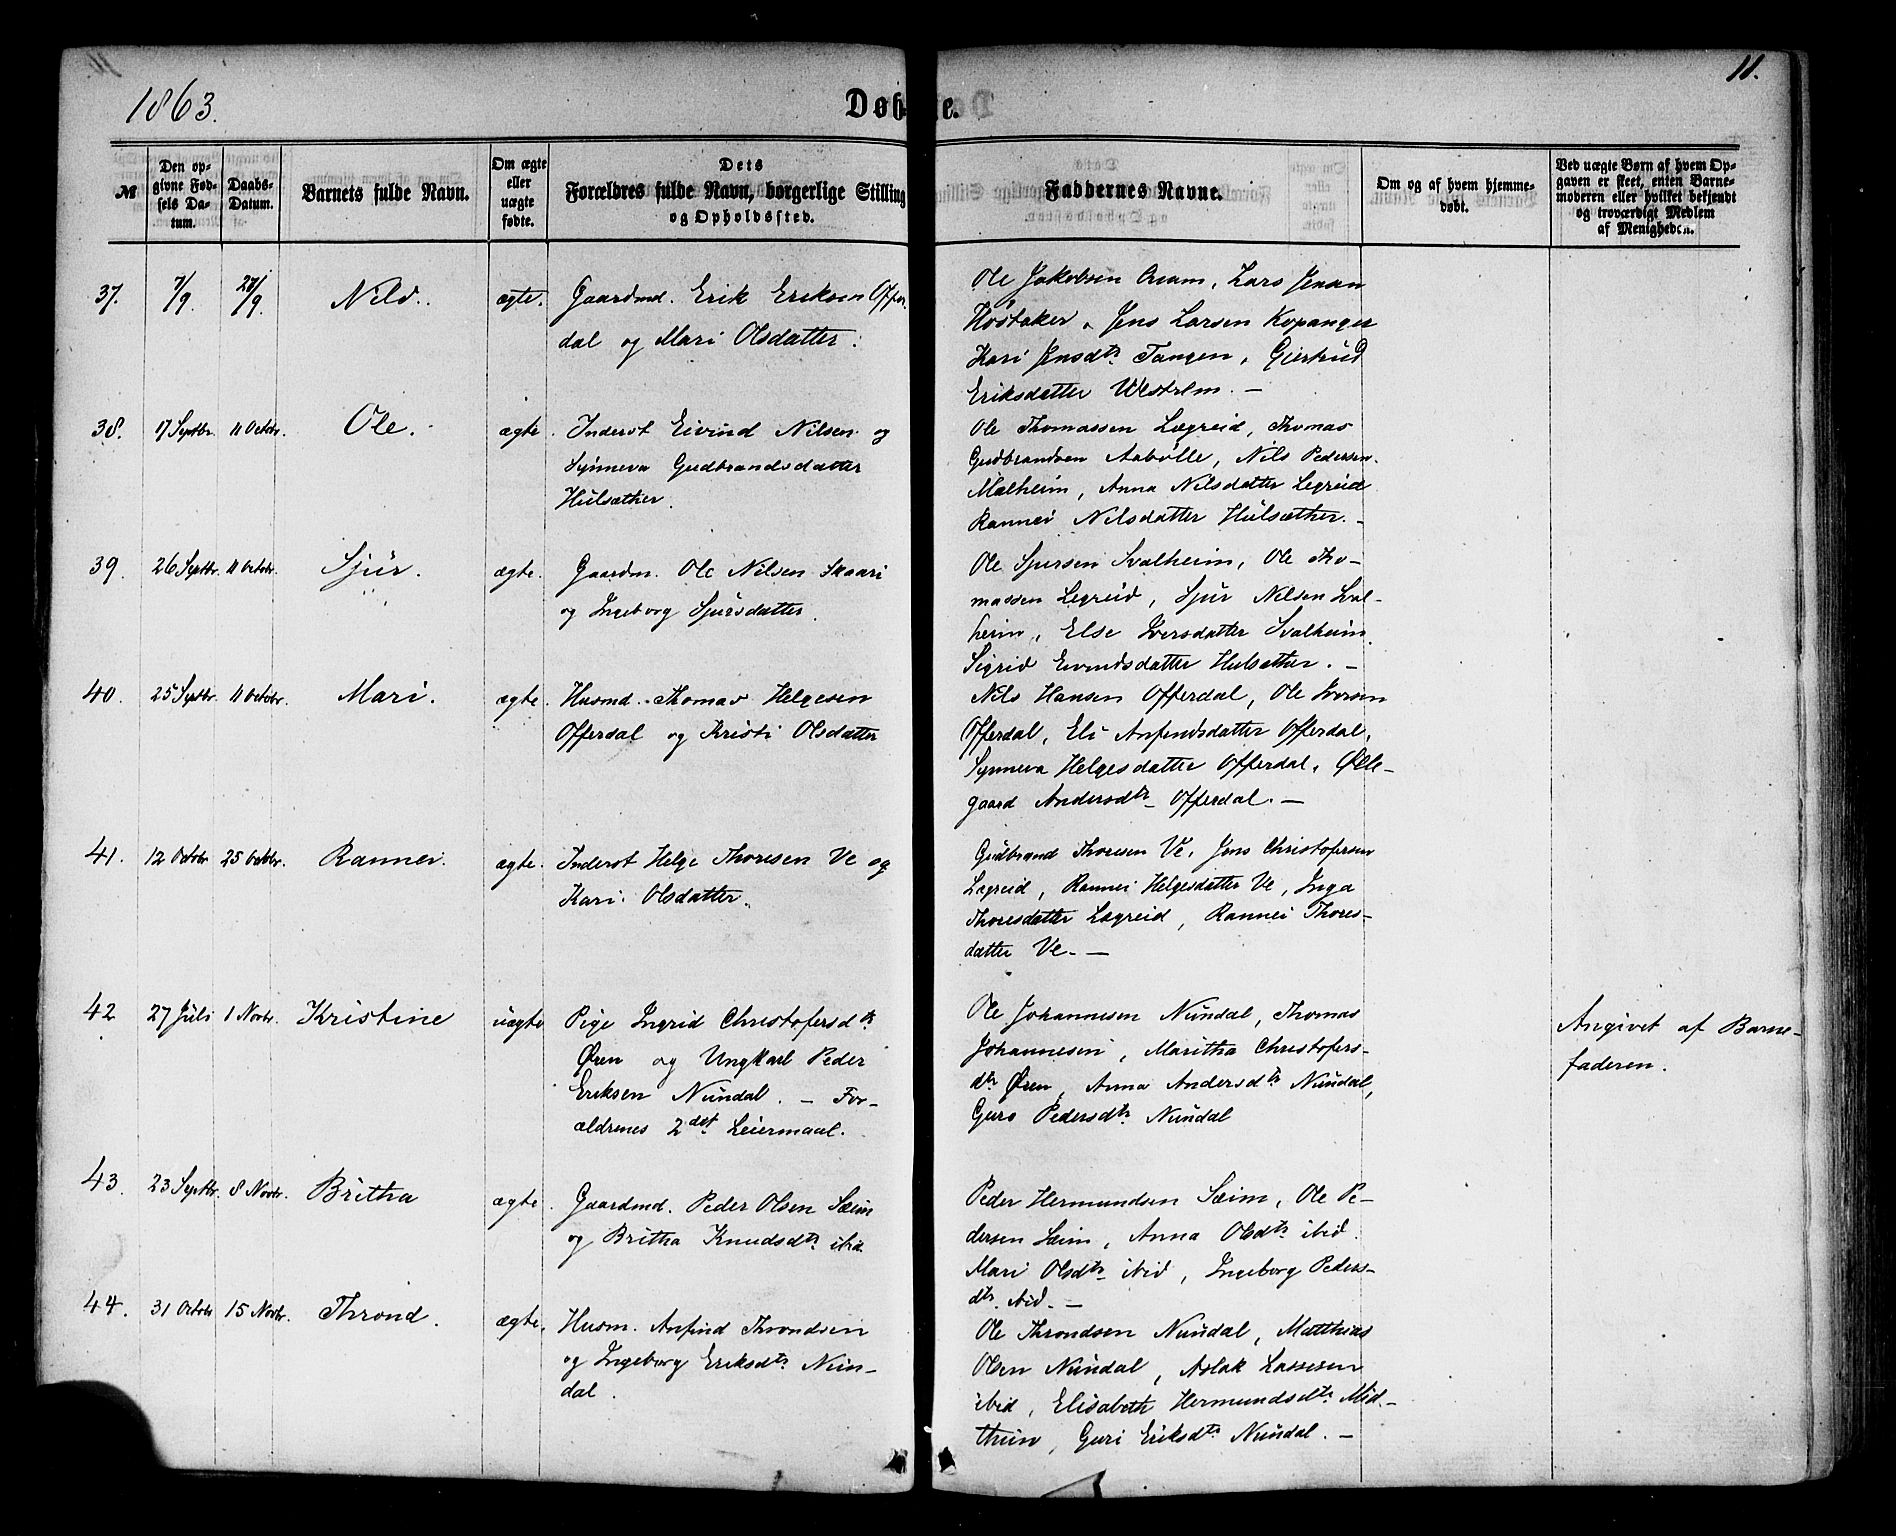 1863.
Døbte.
11.
№
Den opgivne Fødsels Datum.
Daabs-Datum.
Barnets fulde Navn.
Om ægte eller uægte fødte.
Dets Forældres fulde Navn, borgerlige Stilling og Opholdssted.
Faddernes Navne.
Om og af hvem hjemmedøbt.
Ved uægte Børn af hvem Opgaven er skeet, enten Barnemoderen eller hvilket bekjendt og troværdigt Medlem af Menigheden.
37. 7/9. 27/9. Nils. ægte. Gaardmd. Erik Eriksen Offer-
dal og Mari Olsdatter.
Ole Jakobsen, Lars Jensen
Høstaker, Jens Larsen Kopanger
Kari Jensdtr Tangen, Gjertrud
Eriksdatter Westrem. —
38. 17 Septbr. 11 Octobr. Ole. ægte. Inderst Eivind Nilsen og
Synneva Gudbrandsdatter
Hulsæther.
Ole Thomassen Lægreid, Thomas
Gudbrandsen Aabølle, Nils Pedersen
Malheim, Anna Nilsdatter Legreid
Rannei Nilsdatter Hulsæther. —
39. 26 Septbr. 11 Octobr. Sjur. ægte. Gaardm. Ole Nilsen Skaari
og Ingeborg Sjursdatter.
Ole Sjursen Svalheim, Ole Tho-
massen Legreid, Sjur Nilsen Sval-
heim, Else Iversdatter Svalheim,
Sigrid Eivindsdatter Hulsæther. —
40. 25 Septbr. 11 Octobr. Mari. ægte. Husmd. Thomas Helgesen
Offerdal og Kristi Olsdatter
Nils Hansen Offerdal, Ole Iversen
Offerdal, Eli Anfindsdatter Offerdal,
Synneva Helgesdatter Offerdal, Olle-
gaard Andersdtr Offerdal. —
41. 12 Octobr 25 Octobr. Rannei. ægte. Inderst Helge Thoresen Ve og
Kari Olsdatter.
Gudbrand Thoresen Ve, Jens Christofersen
Lægreid, Rannei Helgesdatter Ve, Inga
Thoresdatter Lægreid, Rannei Thores-
datter Ve. —
42 27 Juli 1 Novbr. Kristine uægte Pige Ingrid Christofersdtr
Øren og Ungkarl Peder
Eriksen Nundal. — For-
ældrenes 2det Leiermaal.
Ole Johannesen Nundal, Thomas
Johannesen, Maritha Christofers-
dtr Øren, Anna Andersdtr Nundal,
Guro Pedersdtr Nundal
Angivet af Barne-
faderen.
43. 23 Septbr. 8 Novbr. Britha ægte. Gaardmd. Peder Olsen Sæim
og Britha Knudsdtr ibid
Peder Hermundsen Sæim, Ole Pe-
dersen Sæim, Anna Olsdtr ibid.
Mari Olsdtr ibid, Ingeborg Peders-
dtr. ibid. —
44. 31 Octobr 15 Novbr. Thrond. ægte. Husm. Anfind Throndsen
og Ingeborg Eriksdtr Nun-
dal.
Ole Throndsen Nundal, Matthias
Olsen Nundal, Aslak Lassesen
ibid, Elisabeth Hermundsdtr Mid-
thun, Guri Eriksdtr Nundal. —